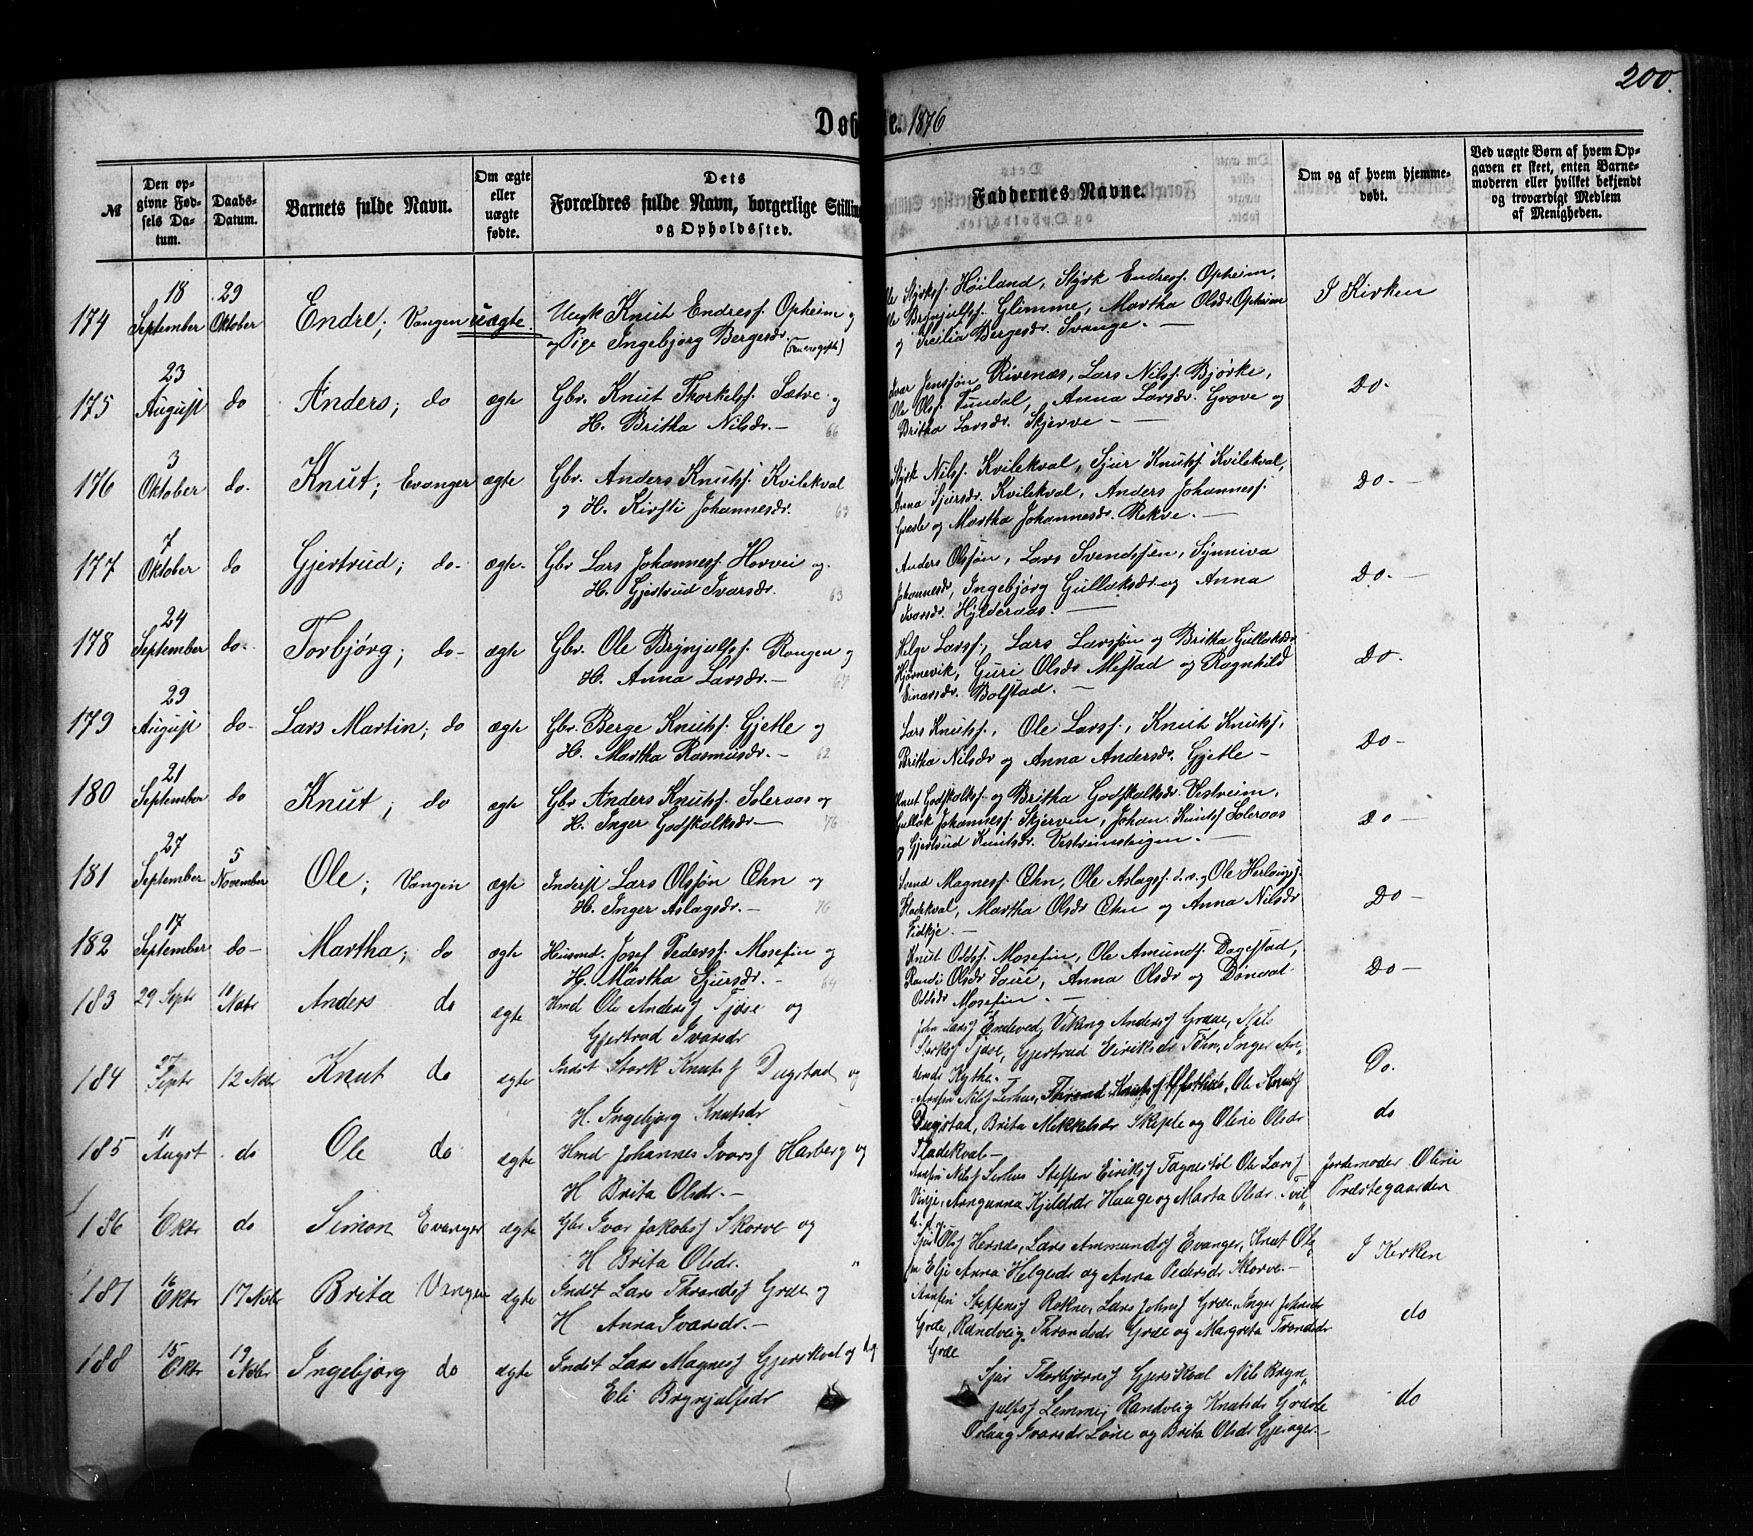 200.
Døbte. 1876
№ | Den opgivne Fødsels Datum. | Daabs-Datum. | Barnets fulde Navn. | Om ægte eller uægte fødte. | Dets Forældres fulde Navn, borgerlige Stilling og Opholdssted. | Faddernes Navne. | Om og af hvem hjemmedøbt. | Ved uægte Børn af hvem Opgaven er skeet, enten Barnemoderen eller hvilket bekjendt og troværdigt Medlem af Menigheden.
174 18 September 29 Oktober Endre; Vangen uægte Ungk Knut Endress. Opheim og
Pige Ingebjørg Bergesdr.
Styrkss. Høiland, Styrk Endress. Opheim,
Brynjulfss. Glimme, Martha Olsdr. Opheim
og Sesilia Bergesdr. Svange. —
I Kirken
175 23 August do Anders; do ægte Gbr. Knut Thorkelss. Sætve og
H. Britha Nilsdr. — 66
Ivar Jenssøn Rivenæs, Lars Nilss. Bjørke,
Ole Olss. Tundal, Anna Larsdr. Grove og
Britha Larsdr. Skjerve —
Do.
176 3 Oktober do. Knut; Evanger ægte Gbr. Anders Knutss. Kvilekval
og H. Kirsti Johannesdr.
Styrk Nilss. Kvilekval, Sjur Knutss. Kvilekval,
Anna Sjursdr. Kvilekval, Anders Johanness.
og Martha Johannesdr. Rekve. —
Do. —
177 7 Oktober do Gjertrud; do. ægte. Gbr Lars Johanness. Horvei og
H. Gjertrud Ivarsdr. 63
Anders Olssøn, Lars Svendssen, Synniva
Johannesdr, Ingebjørg Gullaksdr. og Anna
Ivarsdr. Hylderaas. —
Do. —
178 24 September do. Torbjørg; do. ægte Gbr. Ole Brynjulfss. Rongen og
H. Anna Larsdr. —
Helge Larss., Lars Larssøn og Britha Gullaksdr
Hjørnevik, Guri Olsdr Mestad og Ragnhild
Einarsdr. Bolstad. —
Do.
179 29 August do. Lars Martin; do ægte Gbr. Berge Knutss. Gjetle og
H. Martha Rasmusdr. — 62
Lars Knutss., Ole Larss., Knut Knutss,
Britha Nilsdr og Anna Andersdr. Gjetle —
Do —
180 21 September do Knut; do ægte Gbr Anders Knutss. Soleraas og
H. Inger Godskalksdr — 76
Knut Godskalkss. og Britha Godskalksdr. Vestreim,
Gullak Johanness. Skjerven, Johan. Knutss Soleraas
og Gjertrud Knutsdr. —
Do —
181 27 September 5 November Ole; Vangen ægte Inderst Lars Olssøn Øhn og
H. Inger Aslagsdr. — 76
Svend Magness. Øhn, Ole Aslagss. d. s. og Ole Herlaugss.
Martha Olsdr Øhn og Anna Nilsdr
Do —
182 17 September do — Martha; do ægte Huusmd. Josef Pederss. Mosefin og
H. Martha Sjursdr. — 64
Knut Oddss. Mosefin, Ole Amunds. Dagestad,
Randi Olsdr Saue, Anna Olsdr og
Oddsdr Mosefin. —
Do —
183 29 Septr 10 Nobr Anders do ægte Hmd Ole Anderss Tjøse og
Gjertrud Ivarsdr
John Larss Endeved, Viking Anderss Græe, Nils
Tjøse, Gjertrud Eiriksdr, Inger
Kythe. —
Do.
184 27 Septr 12 Nobr Knut do ægte Indst Stork Knutss Dugstad og
H. Ingebjørg Knutsdr
Arnfin Nilss Lirhus, Thrond Knutss, Ole
Dugstad, Brita Mikkelsdr Skiple og Oline Olsdr
Fladekval —
do
185 11 Augst do Ole do ægte Hmd Johannes Ivarss Harberg og
H Brita Olsdr. —
Arnfin Nilss Lirhus Steffen Eirikss Fagnestøl Ole Larss
Vinje, Arngunna Kjeldsdr Hauge og Marta Olsdr.
Jordemoder Oline
Præstegaarden
186 Oktr do Simon Evanger ægte Gbr Ivar Jakobss Skorve og
H Brita Olsdr.
Olss Hernæs, Lars Ammundss Evanger, Knut
Anna Helgesdr og Anna Pedersdr Skorve —
I Kirken
187 16 Oktr 17 Nobr Brita Vangen ægte Indst Lars Throndss Græe og
H Anna Ivarsdr. —
Arnfin Steffenss Rokne, Lars Johnss Græe, Inger Johnsdr
Græe, Randveig Throndsdr Græe og Margreta Trondsdr
Græe
do
188 15 Oktr 19 Nobr Ingebjørg do ægte Indst Lars Magness Gjerskval og
Eli Brynjulfsdr
Sjur Thorbjørnss Gjerskval Nils Bryn-
julfss Lemme, Randveig Knutsdr
Ivarsdr Løne og Brita Olsdr
do